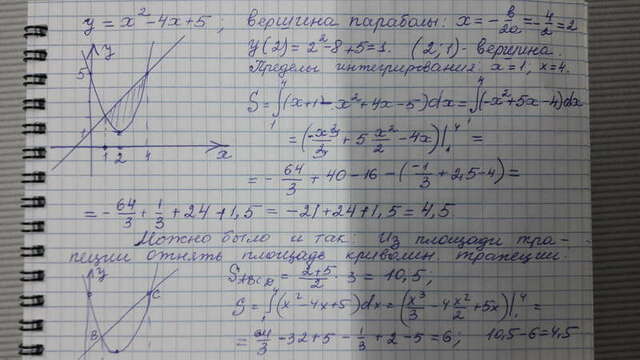 y = x² - 4x + 5 ; вершина параболы: x = - b/2a = - 4/2 = 2
y(2) = 2² - 8 + 5 = 1. (2; 1) - вершина.
Пределы интегрирования: x = 1, x = 4.
S = ∫₁⁴ (x + 1 - x² + 4x - 5) dx = ∫₁⁴ (-x² + 5x - 4) dx
= (-x³/3 + 5 x²/2 - 4x) |₁⁴ =
= - 64/3 + 40 - 16 - (-1/3 + 2,5 - 4) =
= - 64/3 + 1/3 + 24 + 1,5 = -21 + 24 + 1,5 = 4,5.
y
5
1
1 2 4 x
Можно было и так: Из площади тра-
пеции отнять площадь криволин. трапеции.
S ABCD = 2+5/2 · 3 = 10,5;
S = ∫₁⁴ (x² - 4x + 5) dx = (x³/3 - 4x²/2 + 5x) |₁⁴ =
= 64/3 - 32 + 5 - 1/3 + 2 - 5 = 6; 10,5 - 6 = 4,5
y
C
B